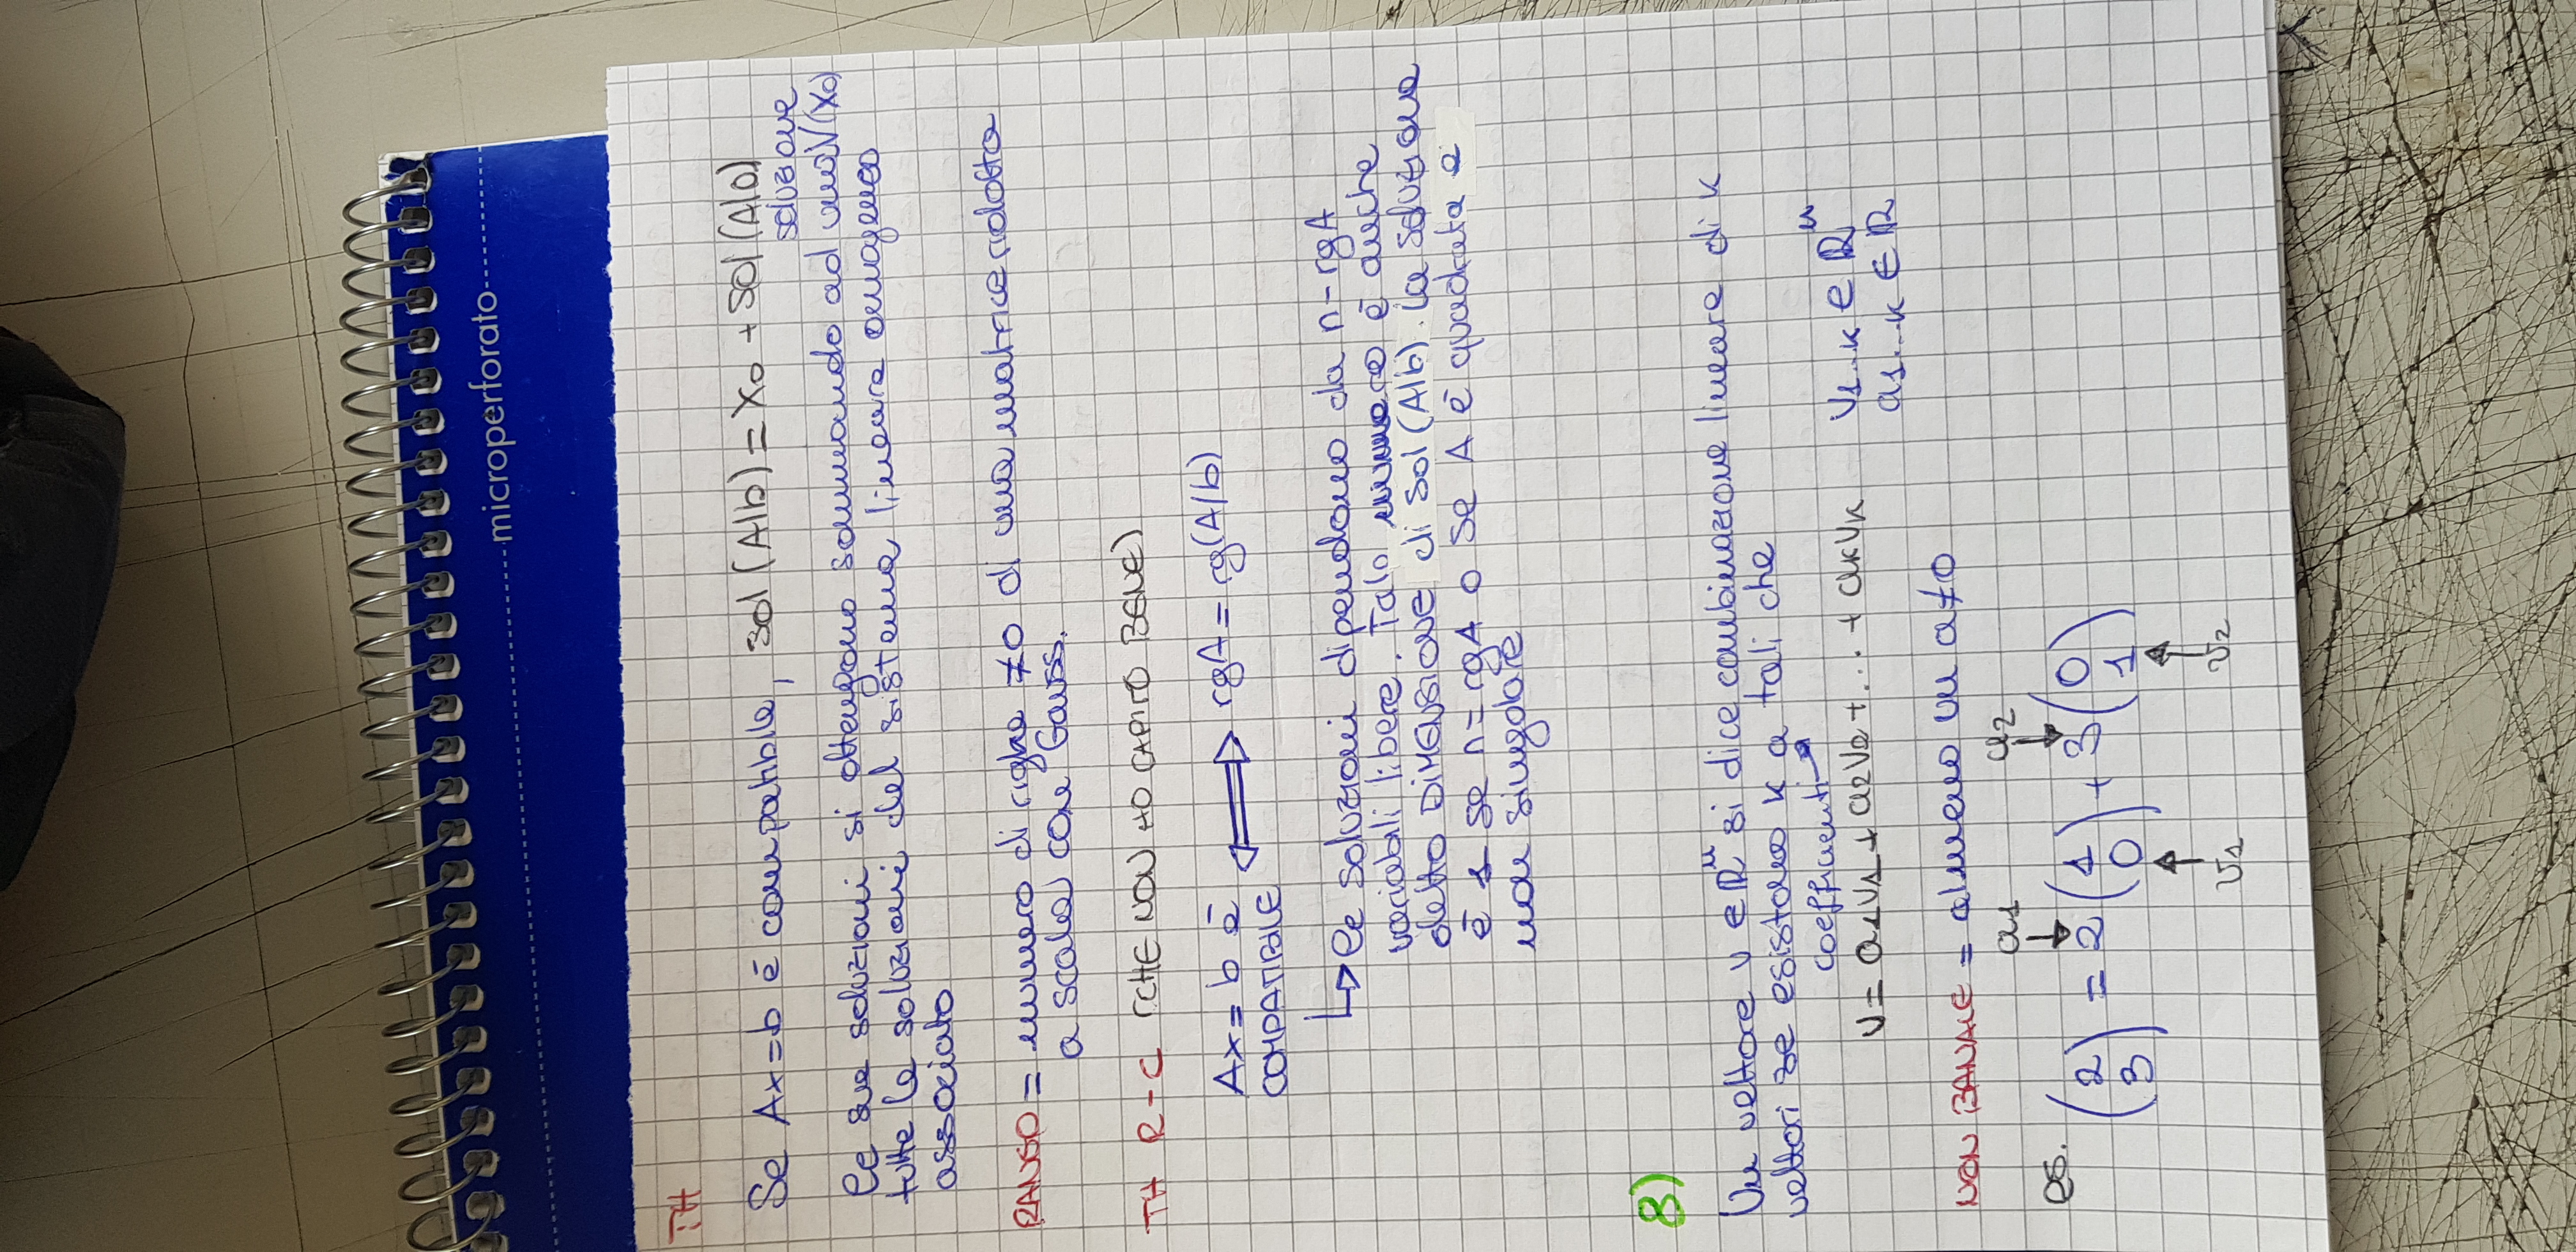 microperforato
TH
Se Ax=b è compatibile, Sol(A|b) = x₀ + Sol(A|0)
soluzione
Le sue soluzioni si ottengono sommando ad una (x₀)
tutte le soluzioni del sistema lineare omogeneo
associato
RANGO = numero di righe ≠0 di una matrice ridotta
a scala con Gauss.
TH R-C (CHE NON HO CAPITO BENE)
Ax=b è ⟺ rgA = rg(A/b)
COMPATIBILE
↳ Le soluzioni dipendono da n-rgA
variabili libere. Tale numero è anche
detto DIMENSIONE di Sol(A|b). La soluzione
è 1 se n=rgA o se A è quadrata e
non singolare
8)
Un vettore v ∈ ℝⁿ si dice combinazione lineare di k
vettori se esistono k a tali che
coefficienti
v = a₁v₁ + a₂v₂ + ... + aₖvₖ v₁...ₖ ∈ ℝⁿ
a₁...ₖ ∈ ℝ
NON BANALE = almeno un a≠0
a₁ a₂
es. (2 3) = 2 (1 0) + 3 (0 1)
v₁ v₂